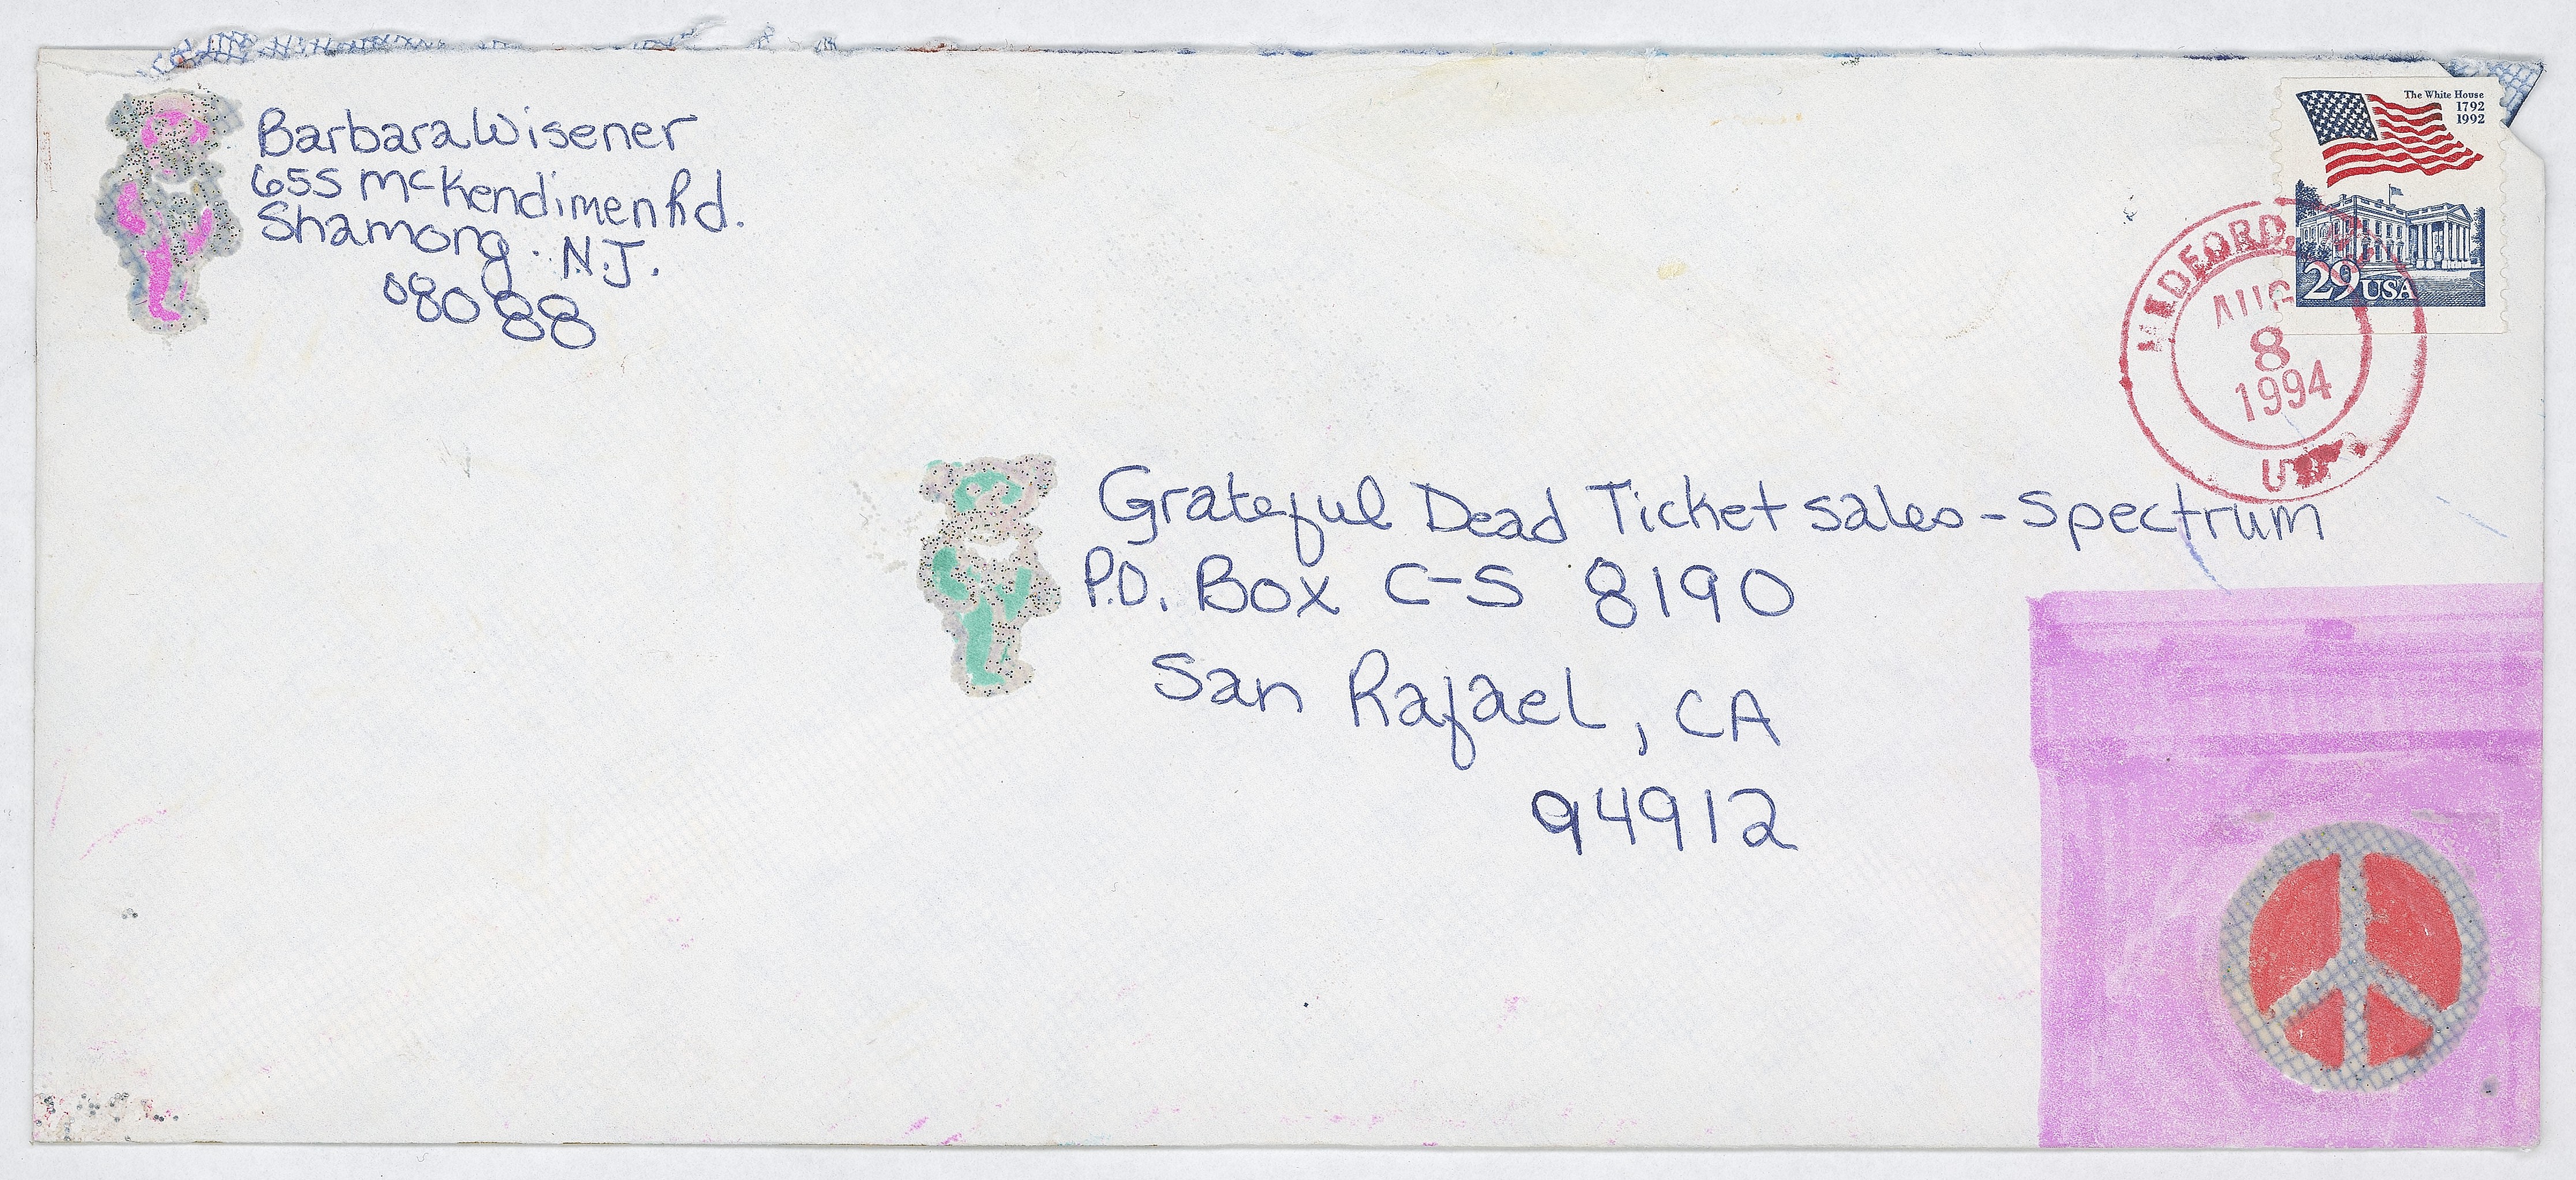 Barbara Wisener
655 McKendimen Rd.
Shamong. N.J.
08088
The White House
1792
1992
29 USA
MEDFORD,
AUG
8
1994
Grateful Dead Ticket Sales - Spectrum
P.O. Box C-S 8190
San Rafael, CA
94912